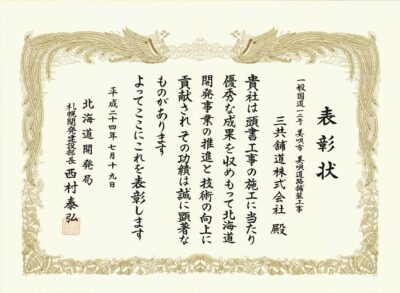 表彰状
一般国道一二号 美唄市 美唄道路舗装工事
三共舗道株式会社 殿
貴社は頭書工事の施工に当たり
優秀な成果を収めもって北海道
開発事業の推進と技術の向上に
貢献され その功績は誠に顕著な
ものがあります
よってここにこれを表彰します
平成二十四年 七月十九日
北海道開発局
札幌開発建設部長 西村泰弘